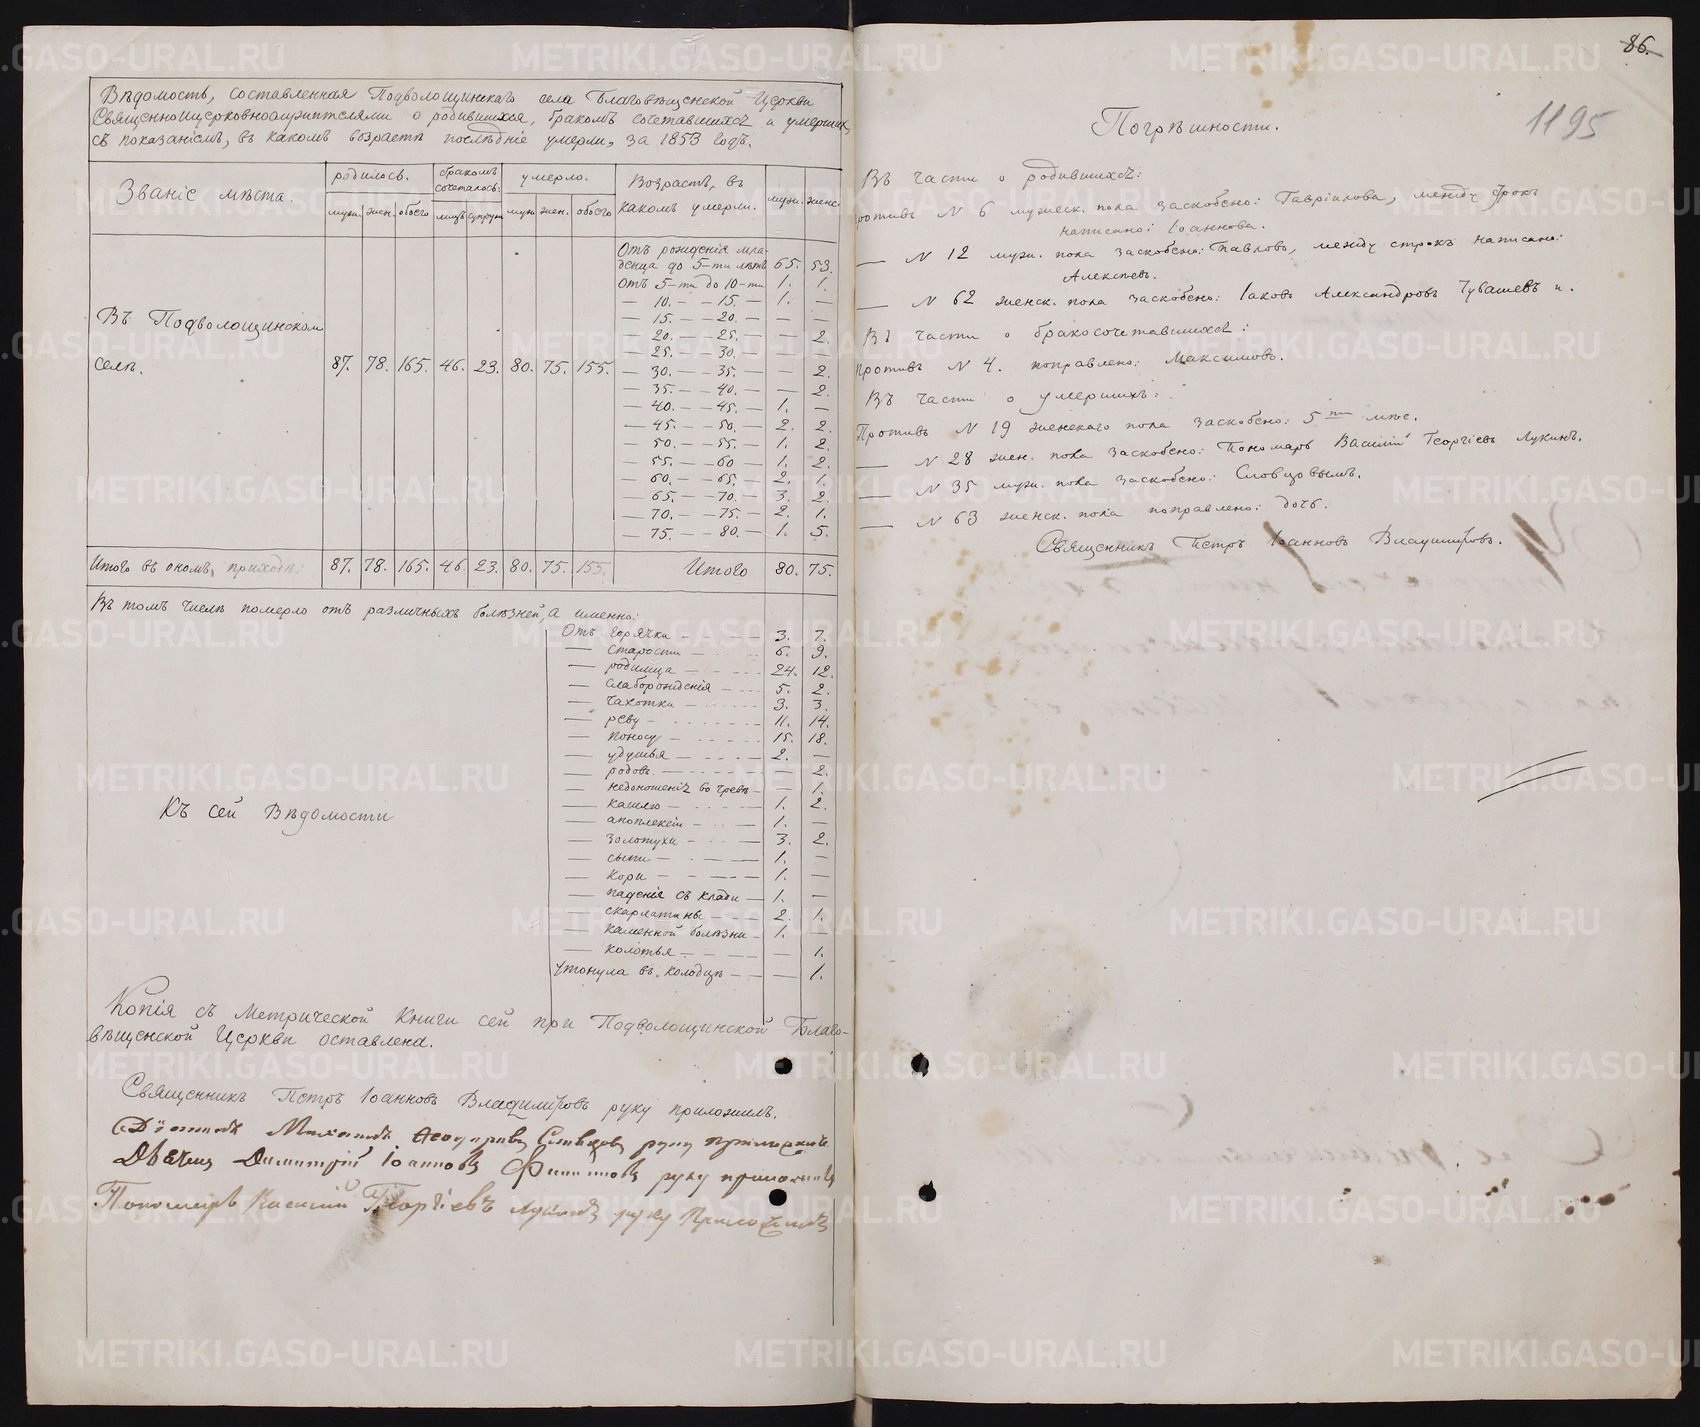 Вѣдомость, составленная Подволошинскаго села Благовѣщенской Церкви
Священноицерковнослужителями о родившихся, бракомъ сочетавшихся и умершихъ,
съ показаніемъ, въ какомъ возрастѣ послѣдніе умерли, за 1853 годъ.
Званіе мѣста. родилось. бракомъ сочеталось: умерло. Возрастъ, въ какомъ умерли. муж. женс.
муж. жен. обоего лицъ супруж. муж. жен. обоего
Отъ рожденія мла-
денца до 5-ти лѣтъ 65. 53.
отъ 5-ти до 10-ти 1. 1.
— 10. — — 15. — 1. —
— 15. — — 20. — — —
— 20. — — 25. — — 2.
— 25. — — 30. — — —
Въ Подволошинском
селѣ. 87. 78. 165. 46. 23. 80. 75. 155.
— 30. — — 35. — — 2.
— 35. — — 40. — — 2.
— 40. — — 45. — 1. —
— 45. — — 50. — 2. 2.
— 50. — — 55. — 1. 2.
— 55. — — 60 — 1. 2.
— 60. — — 65. — 2. 1.
— 65. — — 70. — 3. 2.
— 70. — — 75. — 2. 1.
— 75. — — 80. — 1. 5.
Итого въ ономъ приходѣ: 87. 78. 165. 46. 23. 80. 75. 155. Итого 80. 75.
Въ томъ числѣ померло отъ различныхъ болѣзней, а именно:
Отъ горячки — 3. 7.
— старости — 6. 9.
— родимца — 24. 12.
— слаборожденія — 5. 2.
— чахотки — 3. 3.
— реву — 11. 14.
— поносу — 15. 18.
— удушья — 2. —
— родовъ — — 2.
— недоношенія во чревѣ — — 1.
— кашлю — 1. 2.
— апоплексіи — 1. —
— золотухи — 3. 2.
— сыпи — 1. —
— кори — 1. —
— паденія съ клади — 1. —
— скарлатины — 2. 1.
— каменной болѣзни — 1. —
— колотья — — 1.
утонула въ колодцѣ — — 1.
Къ сей Вѣдомости
Копія съ Метрической Книги сей при Подволошинской Благо-
вѣщенской Церкви оставлена.
Священникъ Петръ Іоанновъ Владиміровъ руку приложилъ.
Діаконъ Михаилъ Словцовъ руку приложилъ
Дьячекъ Димитрій Іоанновъ Филиповъ руку приложилъ
Пономарь Василій Георгіевъ Лукинъ руку приложилъ
86.
1195
Погрѣшности.
Въ части о родившихся:
ротивъ N 6 мужеск. пола заскоблено: Гавріилова, между строкъ
написано: Іоаннова.
— N 12 муж. пола заскоблено: Павловъ, между строкъ написано:
Алексѣевъ.
— N 62 женск. пола заскоблено: Іаковъ Александровъ Чувашевъ и.
Въ части о бракосочетавшихся:
Противъ N 4. поправлено: Максимовъ.
Въ части о умершихъ:
Противъ N 19 женскаго пола заскоблено: 5ти мѣс.
— N 28 жен. пола заскоблено: Пономарь Василій Георгіевъ Лукинъ.
— N 35 муж. пола заскоблено: Словцовымъ.
— N 63 женск. пола поправлено: дочь.
Священникъ Петръ Іоанновъ Владиміровъ.
METRIKI.GASO-URAL.RU